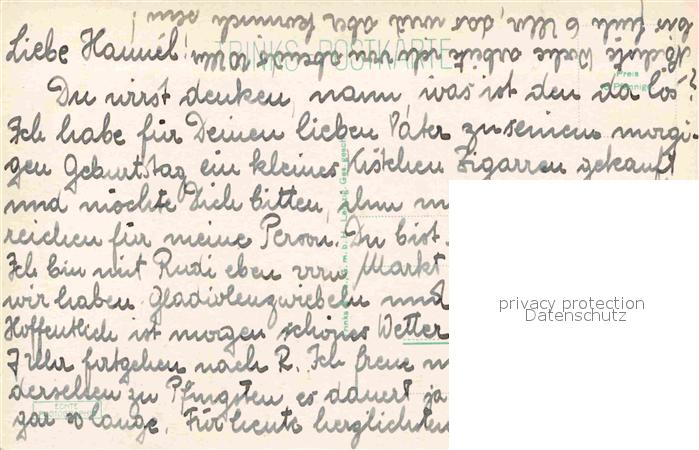 Liebe Hannél!
TRINKS-POSTKARTE
Preis
Pfennige
Du wirst denken, nann, was ist den da los?
Ich habe für Deinen lieben Vater zu seinem morgi-
gen Geburtstag ein kleines Kistchen Zigarren gekauft
und möchte Dich bitten, ihm
reichen für meine Person. Du bist
Ich bin mit Rudi eben vom Markt
wir haben Gladiolenzwiebeln und
Hoffentlich ist morgen schönes Wetter
7 Uhr fortgehen nach R. Ich freue
derselben zu Pfingsten es dauert ja
gar so lange. Für heute herzlichsten
Nächste Woche arbeite ich von abends 10 Uhr
bis früh 6 Uhr, das wird aber komisch sein!
ECHTE
privacy protection
Datenschutz